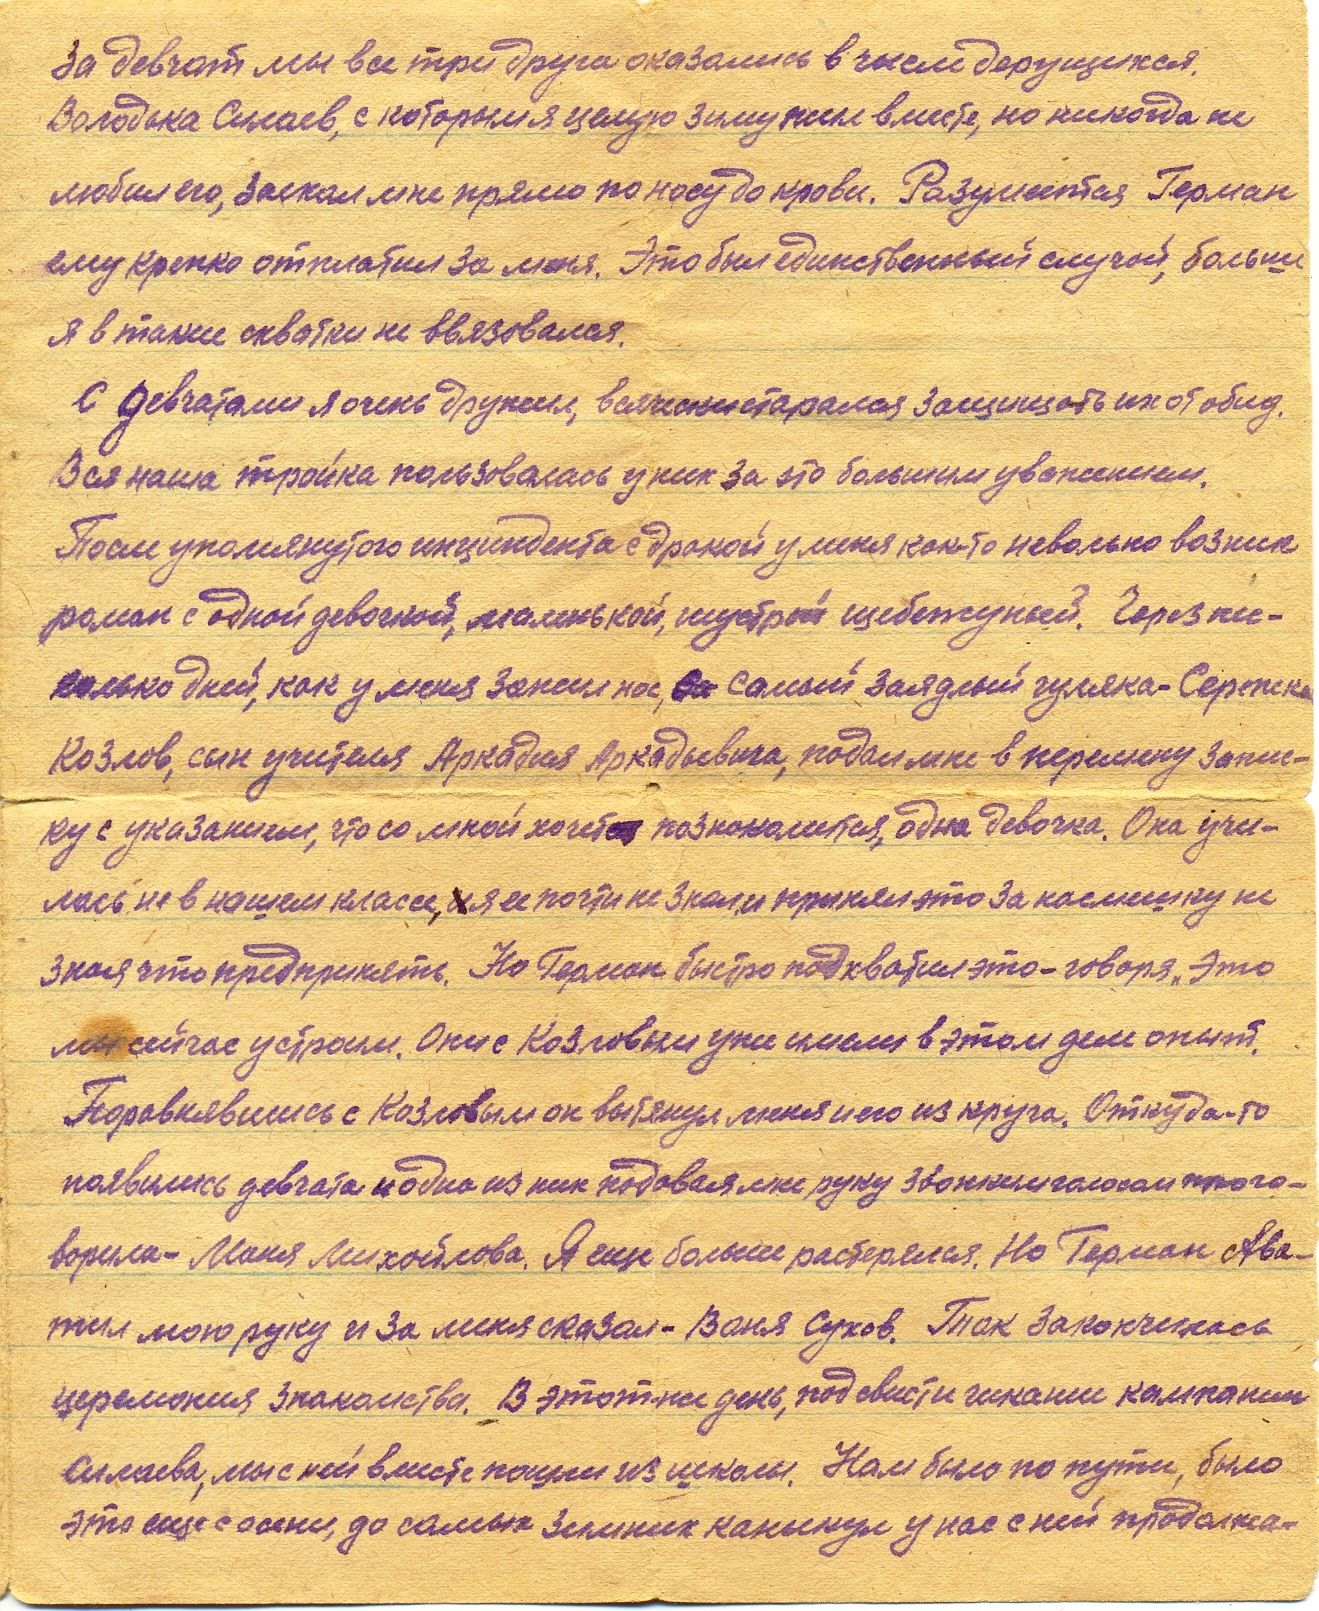 За девчат мы все три друга оказались в числе дерущихся.
Володька Силаев, с которым я целую зиму жил вместе, но никогда не
любил его, заехал мне прямо по носу до крови. Разумеется Герман
ему крепко отплатил за меня. Это был единственный случай, больше
я в такие схватки не ввязовался.
С девчатами я очень дружил, всячески старался защищать их от обид.
Вся наша тройка пользовалась у них за это большим уважением.
После упомянутого инциндента с дракой у меня как-то невольно возник
роман с одной девочкой, маленькой, шустрой щебетуньей. Через не-
колько дней, как у меня зажил нос, самый заядлый гуляка- Сережка
Козлов, сын учителя Аркадия Аркадьевича, подал мне в перемену запис-
ку с указанием, что со мной хочет познакомится, одна девочка. Она учи-
лась не в нашем классе, я ее почти не знал и принял это за насмешку не
зная что предпринять. Но Герман быстро подхватил это- говоря „Это
мы сейчас устроим. Они с Козловым уже имели в этом деле опыт.
Поровнявшись с Козловым он вытянул меня и его из круга. Откуда-то
появились девчата и одна из них подовая мне руку звонким голосом прого-
ворила- Маня Михайлова. Я еще больше растерялся. Но Герман схва-
тил мою руку и за меня сказал- Ваня Сухов. Так закончилась
церемония знакомства. В этот-же день, под свист и гикание компании
Силаева, мы с ней вместе пошли из школы. Нам было по пути, было
это еще с осени, до самых зимних каникул у нас с ней продолжа-